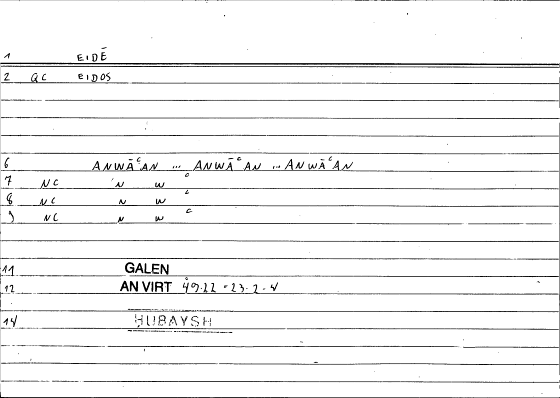 1 EIDĒ
2 QC EIDOS
6 ANWĀᶜAN ... ANWĀᶜAN ... ANWĀᶜAN
7 NC ʾN W ᶜ
8 NC N W ᶜ
9 NC N W ᶜ
11 GALEN
12 AN VIRT
14 HUBAYSH